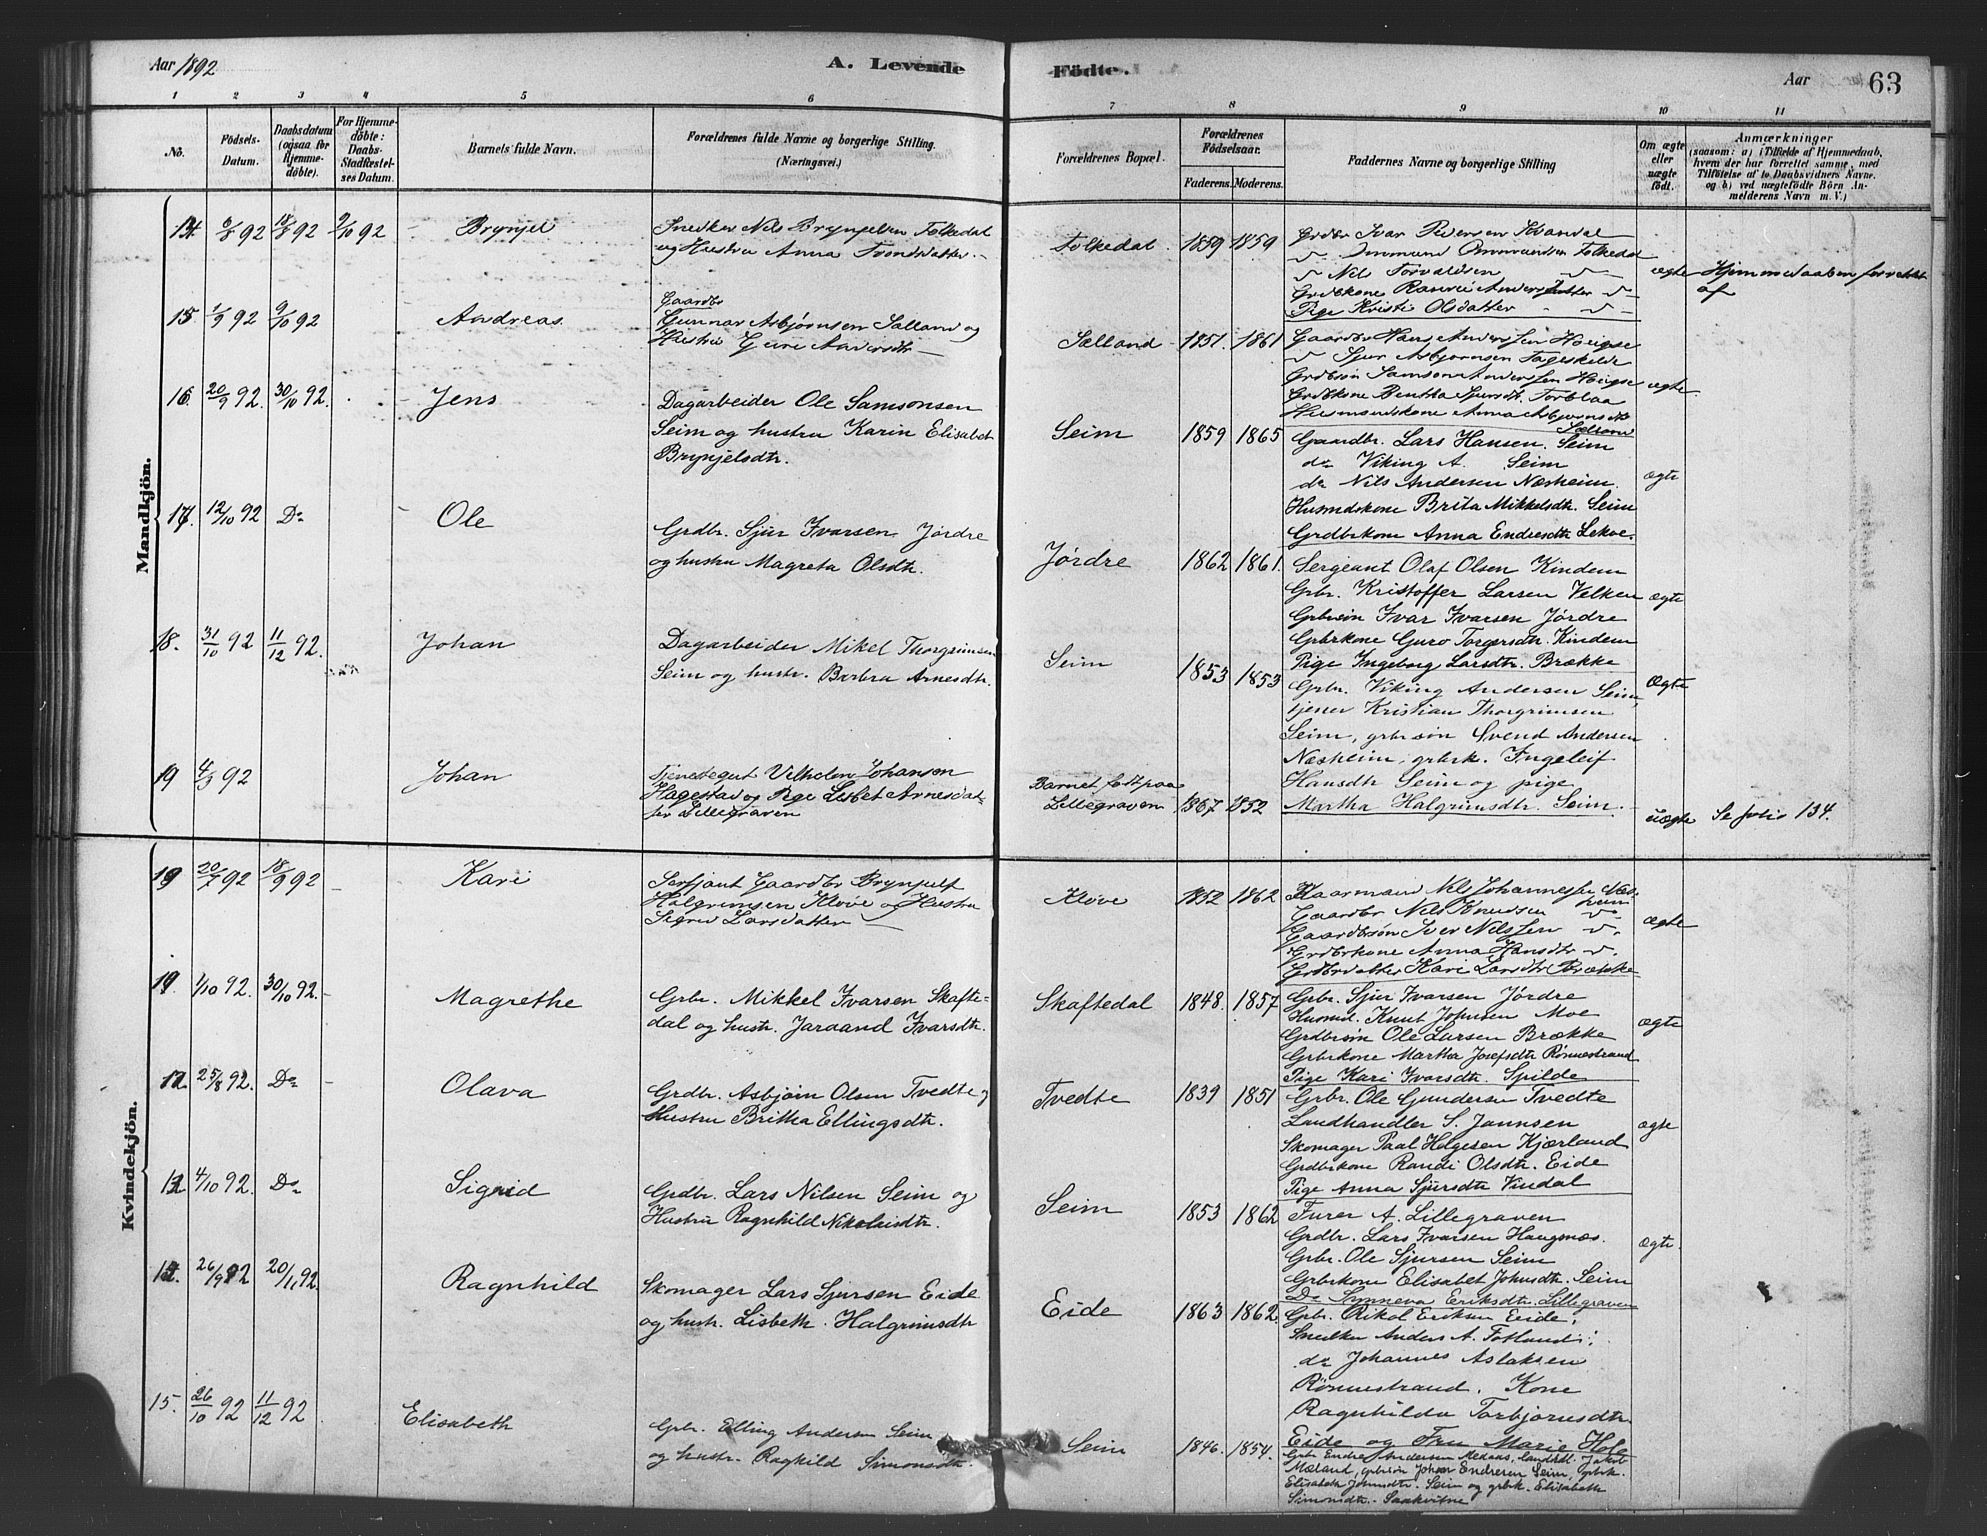 Aar 1892
A. Levende
Födte.
Aar
63
1 2 3 4 5 6 7 8 9 10 11
No.
Födsels-
Datum.
Daabsdatum
(ogsaa for
Hjemme-
döbte).
For Hjemme-
döbte:
Daabs-
Stadfæstel-
ses Datum.
Barnets fulde Navn.
Forældrenes fulde Navne og borgerlige Stilling.
(Næringsvei.)
Forældrenes Bopæl.
Forældrenes
Födselsaar.
Faderens. Moderens.
Faddernes Navne og borgerlige Stilling
Om ægte
eller
uægte
födt.
Anmærkninger
(saasom: a) i Tilfælde af Hjemmedaab,
hvem der har forrettet samme, med
Tilföielse af to Daabsvidners Navne.
og b) ved uægtefödte Börn An-
melderens Navn m. V.)
Mandkjön.
14. 6/8 92 18/8 92 9/10 92 Brynjel
Snedker Nils Brynjelsen Folkedal
og Hustru Anna Trondsdatter.
Folkedal. 1859 1859
Grdbr Ivar Pedersen Kvandal
Nils Torvaldsen
Pige Kristi Olsdatter
ægte Hjemmedaaben forrettet
af
15 1/9 92 9/10 92 Andreas
Gaardbr
Gunnar Asbjørnsen Sælland og
Hustru Guri Andersdtr
Sælland 1857. 1861
Gaardbr Hans Anderssen Hougse
Sjur Asbjørnsen
Grdbsøn Samson Anderssen Hougse
Grdbkone Bentha Sjursdtr. Torblaa
Husmandskone Anna Asbjørnsdtr
Sælland
ægte
16 20/9 92. 30/10 92. Jens
Dagarbeider Ole Samsonsen
Seim og hustru Karin Elisabet
Brynjelsdtr.
Seim 1859 1865
Gaardbr. Lars Hansen. Seim
do Viking A. Seim
do Nils Andersen Næsheim.
Husmdskone Brita Mikkelsdtr. Seim
Grdbrkone Anna Endresdtr Lekve.
ægte
17 12/10 92 Do Ole
Grdbr. Sjur Ivarsen Jørdre
og hustru Magreta Olsdtr.
Jørdre 1862 1861.
Sergeant Olaf Olsen Kindem
Grbr. Kristoffer Larsen Velken
Grbrsøn Ivar Ivarsen Jørdre
Grbrkone Guro Torgersdtr. Kindem
Pige Ingeborg Larsdtr. Brække
ægte
18. 31/10 92 11/12 92. Johan
Dagarbeider Mikel Thorgrimsen
Seim og hustr. Barbra Arnesdtr.
Seim 1853 1853
Grbr. Viking Andersen Seim,
tjener Kristian Thorgrimsen
Seim, grbrsøn Svend Andersen
Næsheim, grbrk. Ingeleif
Hansdtr Seim og pige
Martha Halgrimsdtr. Seim.
Ægte
19 4/3 92 Johan
Tjenestegut Vilhelm Johansen
Hagestad og Pige Lisbet Arnesdat-
ter Lillegraven
Barnet født paa
Lillegraven 1867 1852
uægte Se folio 134.
Kvindekjön.
20/7 92 18/9 92 Kari
Serfjant Gaardbr Brynjulf
Halgrimsen Kløve og Hustru
Sigrid Larsdatter
Kløve 1852 1862
Haarmand Nils Johannesse Næs-
heim
Gaardbr Nils Knudsen
Gaardbsøn Iver Nilssen
Grdbrkone Anna Hansdtr
Grdbrdatter Kari Larsdtr Brække
ægte
1/10 92. 30/10 92. Magrethe
Grbr. Mikkel Ivarsen Skafte-
dal og hustr. Jaraand Ivarsdtr.
Skaftedal 1848. 1857
Grbr. Sjur Ivarsen Jørdre
Husmd. Knut Johnsen Moe
Grdbrsøn Ole Larsen Brække
Grbrkone Martha Josefsdtr Rønnestrand
Pige Kari Ivarsdtr. Spilde
ægte
25/8 92. Do Olava
Grdbr. Asbjørn Olsen Tvedte og
Hustru Britha Ellingsdtr.
Tvedte 1839 1851
Grbr. Ole Gundersen Tvedte
Landhandler S. Jannsen
Skomager Paal Helgesen Kjærland
Grdbrkone Randi Olsdtr. Eide
Pige Anna Sjursdtr Vindal
ægte
4/10 92. Do Sigrid
Grdbr. Lars Nilsen Seim og
Hustru Ragnhild Nikolaisdtr.
Seim 1853 1862
Furer A. Lillegraven
Grdbr. Lars Ivarsen Haugsnæs.
Grbr. Ole Sjursen Seim
Grbrkone Elisabet Johnsdtr. Seim
Do Synneva Eriksdtr. Lillegraven
ægte.
26/9 92 20/11 92. Ragnhild
Skomager Lars Sjursen Eide
og hustr. Lisbeth Halgrimsdtr
Eide 1863 1862.
Grbr. Rikol Eriksen Eide,
Snedker Anders A. Folland
do Johannes Aslaksen
Rønnestrand. Kone
Ragnhilda Torbjørnsdtr.
Eide og Fru Marie Hole
15. 26/10 92 11/12 92 Elisabeth
Grbr. Elling Andersen Seim
og hustr. Raghild Simonsdtr.
Seim 1846. 1854.
Grbr Endre Andersen Medaas, landhdl. Jakob
Mæland, grbrsøn Johan Endresen Seim, grbrk.
Elisabeth Johnsdtr. Seim og grbrk. Elisabeth
Simonsdtr. Saakvitne